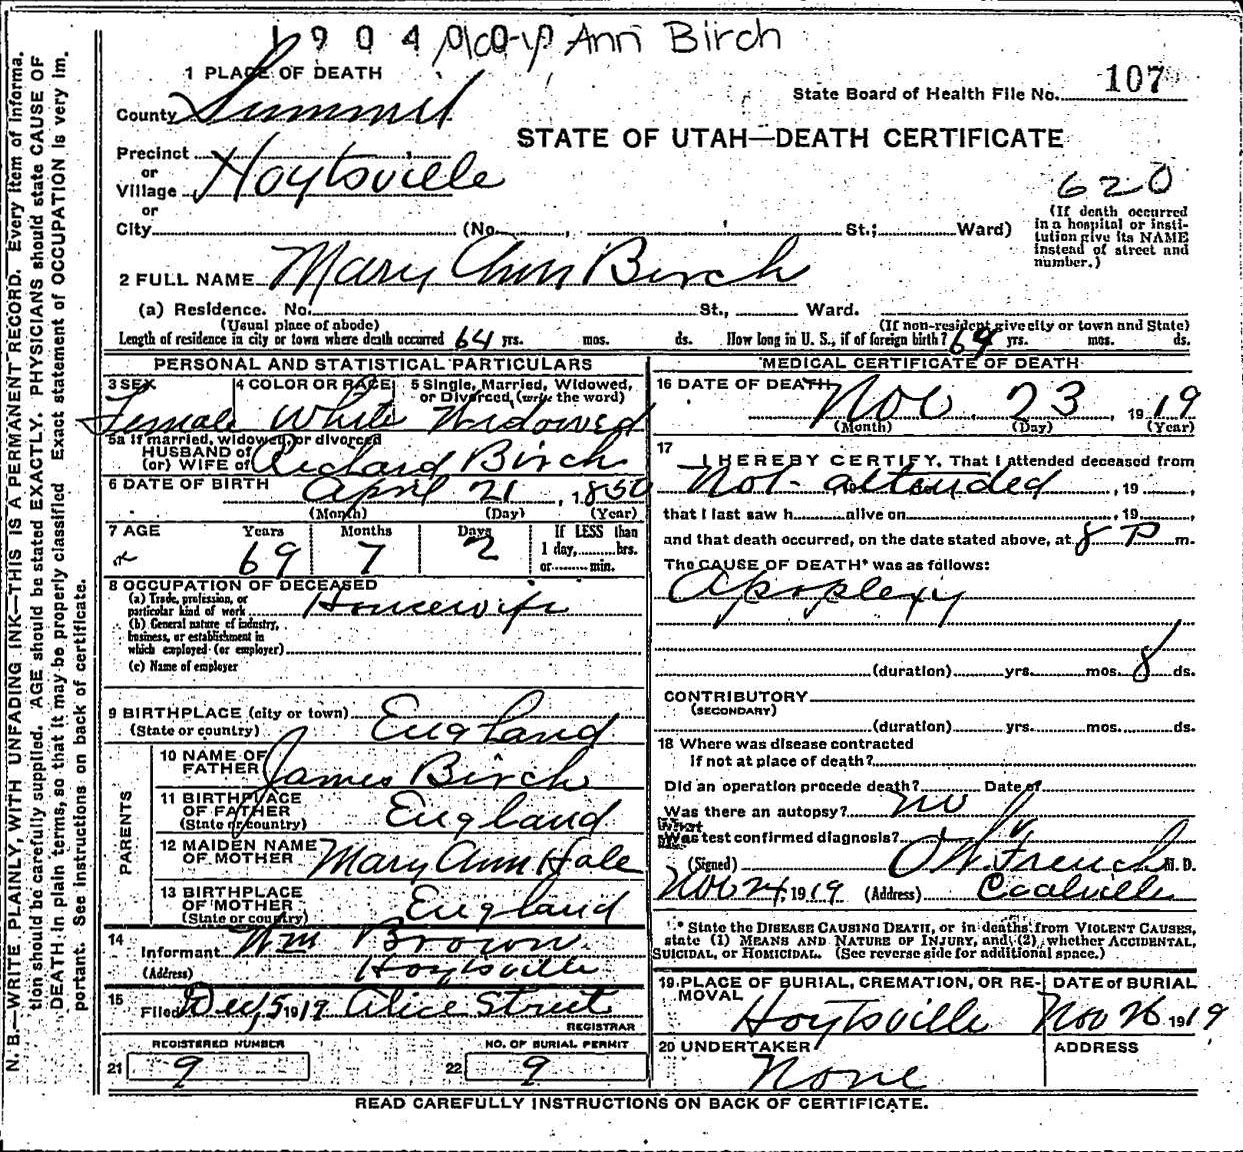 1904 Ann Birch
1 PLACE OF DEATH
State Board of Health File No. 107
County Summit
STATE OF UTAH—DEATH CERTIFICATE
Precinct
or
Village Hoytsville
620
or
City (No. , St.; Ward)
(If death occurred in a hospital or insti-
tution give its NAME
instead of street and
number.)
2 FULL NAME Mary Ann Birch
(a) Residence. No. St., Ward.
(Usual place of abode) (If non-resident give city or town and State)
Length of residence in city or town where death occurred 64 yrs. mos. ds. How long in U. S., if of foreign birth? 64 yrs. mos. ds.
PERSONAL AND STATISTICAL PARTICULARS
3 SEX 4 COLOR OR RACE 5 Single, Married, Widowed,
or Divorced, (write the word)
Female White Widowed
5a If married, widowed, or divorced
HUSBAND OF
(or) WIFE of Richard Birch
6 DATE OF BIRTH April 21, 1850
(Month) (Day) (Year)
7 AGE Years Months Days If LESS than
69 7 2 1 day, hrs.
or min.
8 OCCUPATION OF DECEASED
(a) Trade, profession, or
particular kind of work Housewife
(b) General nature of industry,
business, or establishment in
which employed (or employer)
(c) Name of employer
9 BIRTHPLACE (city or town)
(State or country) England
PARENTS
10 NAME OF
FATHER James Birch
11 BIRTHPLACE
OF FATHER England
(State or country)
12 MAIDEN NAME
OF MOTHER Mary Ann Hale
13 BIRTHPLACE
OF MOTHER England
(State or country)
14
Informant Wm Brown
(Address) Hoytsville
15
Filed Dec 5 1919 Alice Street
REGISTRAR
REGISTERED NUMBER NO. OF BURIAL PERMIT
21 9 22 9
MEDICAL CERTIFICATE OF DEATH
16 DATE OF DEATH Nov. 23, 1919
(Month) (Day) (Year)
17
I HEREBY CERTIFY, That I attended deceased from
Not attended , 19 ,
that I last saw h alive on , 19 ,
and that death occurred, on the date stated above, at 8 P m.
The CAUSE OF DEATH* was as follows:
Apoplexy
(duration) yrs. mos. 8 ds.
CONTRIBUTORY
(SECONDARY)
(duration) yrs. mos. ds.
18 Where was disease contracted
if not at place of death?
Did an operation procede death? Date of
Was there an autopsy? no
What test confirmed diagnosis?
(Signed) French M. D.
Nov 24, 1919 (Address) Coalville
* State the DISEASE CAUSING DEATH, or in deaths from VIOLENT CAUSES,
state (1) MEANS AND NATURE OF INJURY, and (2) whether ACCIDENTAL,
SUICIDAL, or HOMICIDAL. (See reverse side for additional space.)
19 PLACE OF BURIAL, CREMATION, OR RE-
MOVAL Hoytsville
DATE of BURIAL
Nov 26 1919
20 UNDERTAKER None
ADDRESS
READ CAREFULLY INSTRUCTIONS ON BACK OF CERTIFICATE.
N. B.—WRITE PLAINLY, WITH UNFADING INK—THIS IS A PERMANENT RECORD. Every item of informa-
tion should be carefully supplied. AGE should be stated EXACTLY. PHYSICIANS should state CAUSE OF
DEATH in plain terms, so that it may be properly classified. Exact statement of OCCUPATION is very im-
portant. See instructions on back of certificate.